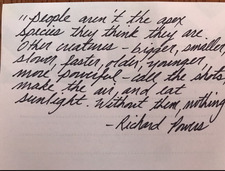 "People aren't the apex
species they think they are.
Other creatures - bigger, smaller,
slower, faster, older, younger,
more powerful - call the shots,
make the air, and eat
sunlight. Without them, nothing
- Richard Powers